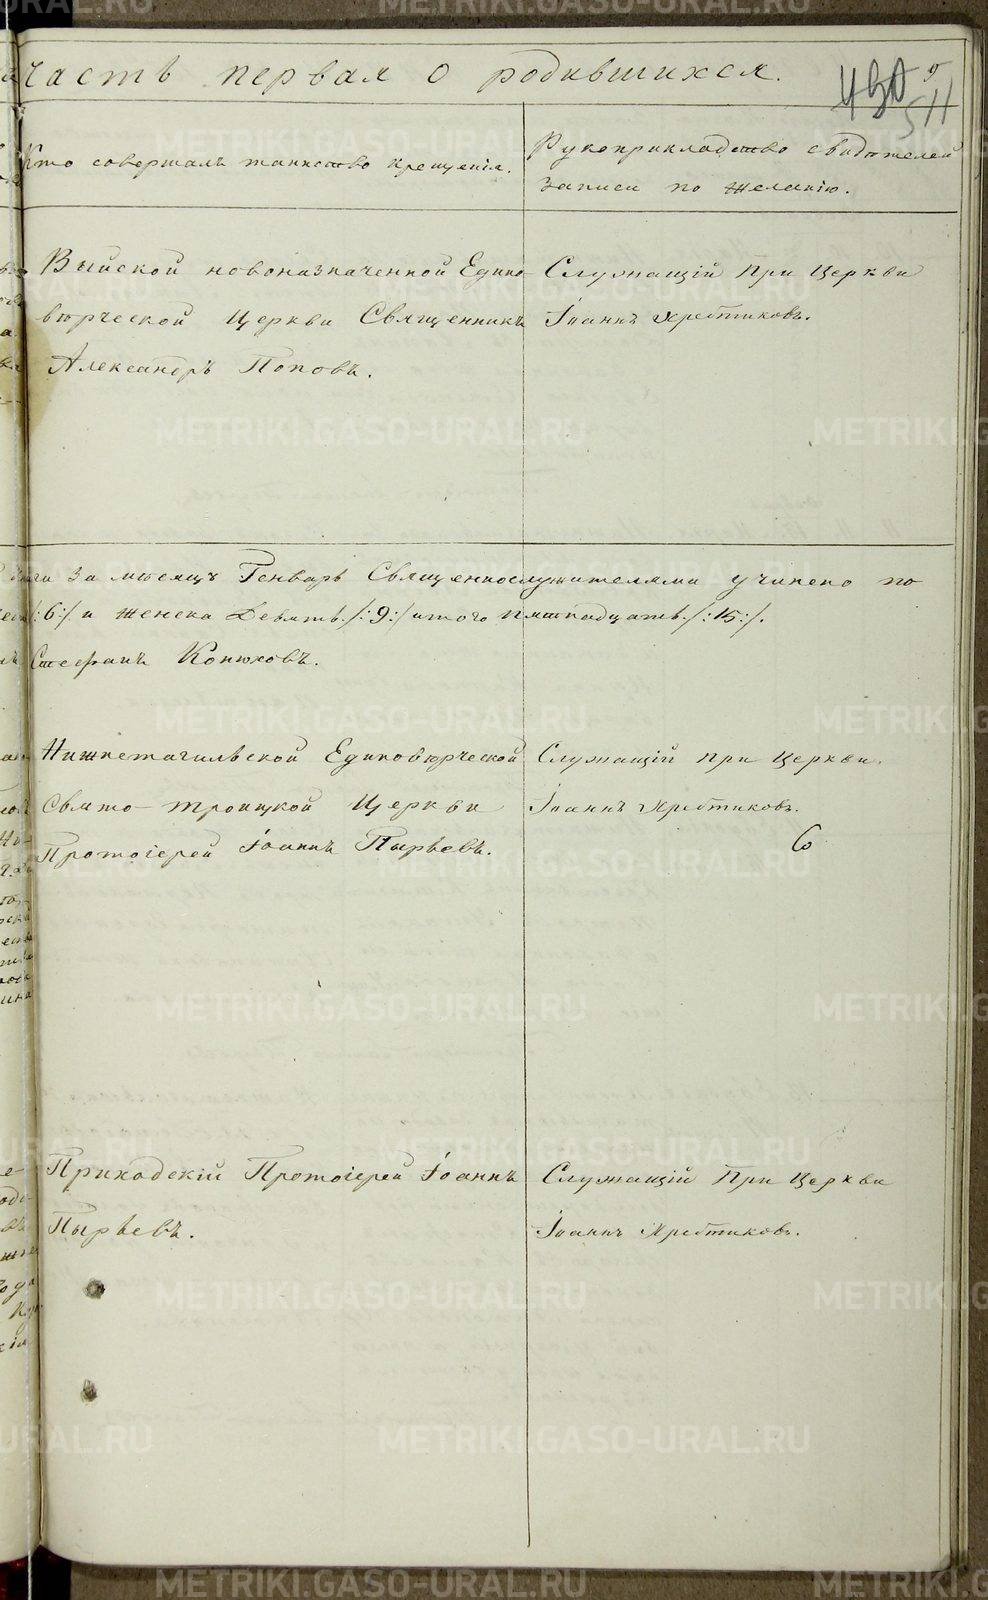 Часть первая о родившихся.
5
430
511
Кто совершалъ таинство крещенія.
Рукоприкладство свидѣтелей
записи по желанію.
Выйской новоназначенной Едино
вѣрческой Церкви Священникъ
Александръ Поповъ.
Служащій при Церкви
Іоаннъ Хребтиковъ.
за мѣсяцъ Генварь Священнослужителями учинено по
/:6:/ и женска Девять /:9:/ итого пятнадцать /:15:/.
Стефанъ Конюховъ.
Нижнетагильской Единовѣрческой
Свято-Троицкой Церкви
Протоіерей Іоаннъ Пырьевъ.
Служащій при Церкви
Іоаннъ Хребтиковъ.
Приходскій Протоіерей Іоаннъ
Пырьевъ.
Служащій При Церкви
Іоаннъ Хребтиковъ.
METRIKI.GASO-URAL.RU